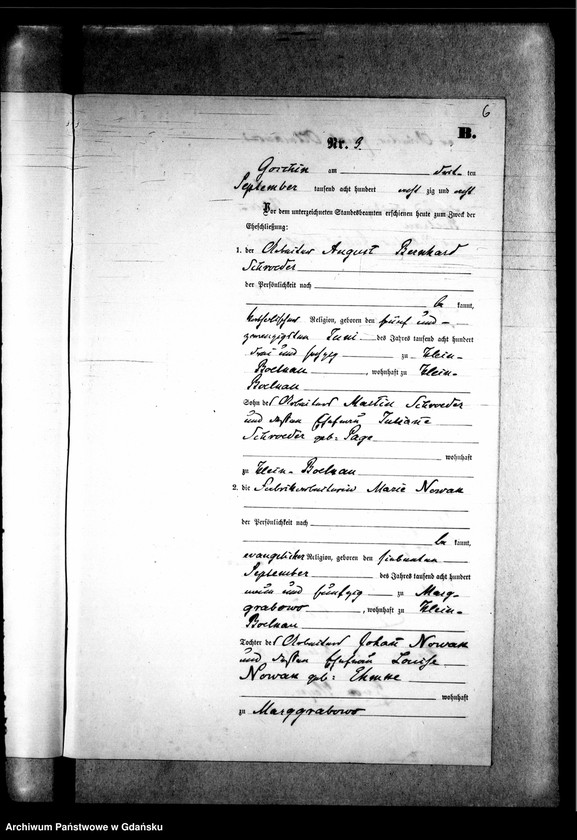 6
B.
Nr. 9.
Gorchin am drit- ten
September tausend acht hundert acht zig und acht
Vor dem unterzeichneten Standesbeamten erschienen heute zum Zweck der
Eheschließung:
1. der Arbeiter August Bernhard
Schroeder
der Persönlichkeit nach
be kannt,
katholischer Religion, geboren den fünf und-
zwanzigsten Juni des Jahres tausend acht hundert
drei und sechzig zu Klein-
Boelkau, wohnhaft zu Klein-
Boelkau
Sohn des Arbeiters Martin Schroeder
und dessen Ehefrau Juliane
Schroeder geb: Page
wohnhaft
zu Klein-Boelkau
2. die Fabrikarbeiterin Marie Nowak
der Persönlichkeit nach
be kannt,
evangelischer Religion, geboren den siebenten
September des Jahres tausend acht hundert
neun und fünfzig zu Marg-
grabowo, wohnhaft zu Klein-
Boelkau
Tochter des Arbeiters Johann Nowak
und dessen Ehefrau Louise
Nowak geb: Ehmke
wohnhaft
zu Marggrabowo
Archiwum Państwowe w Gdańsku